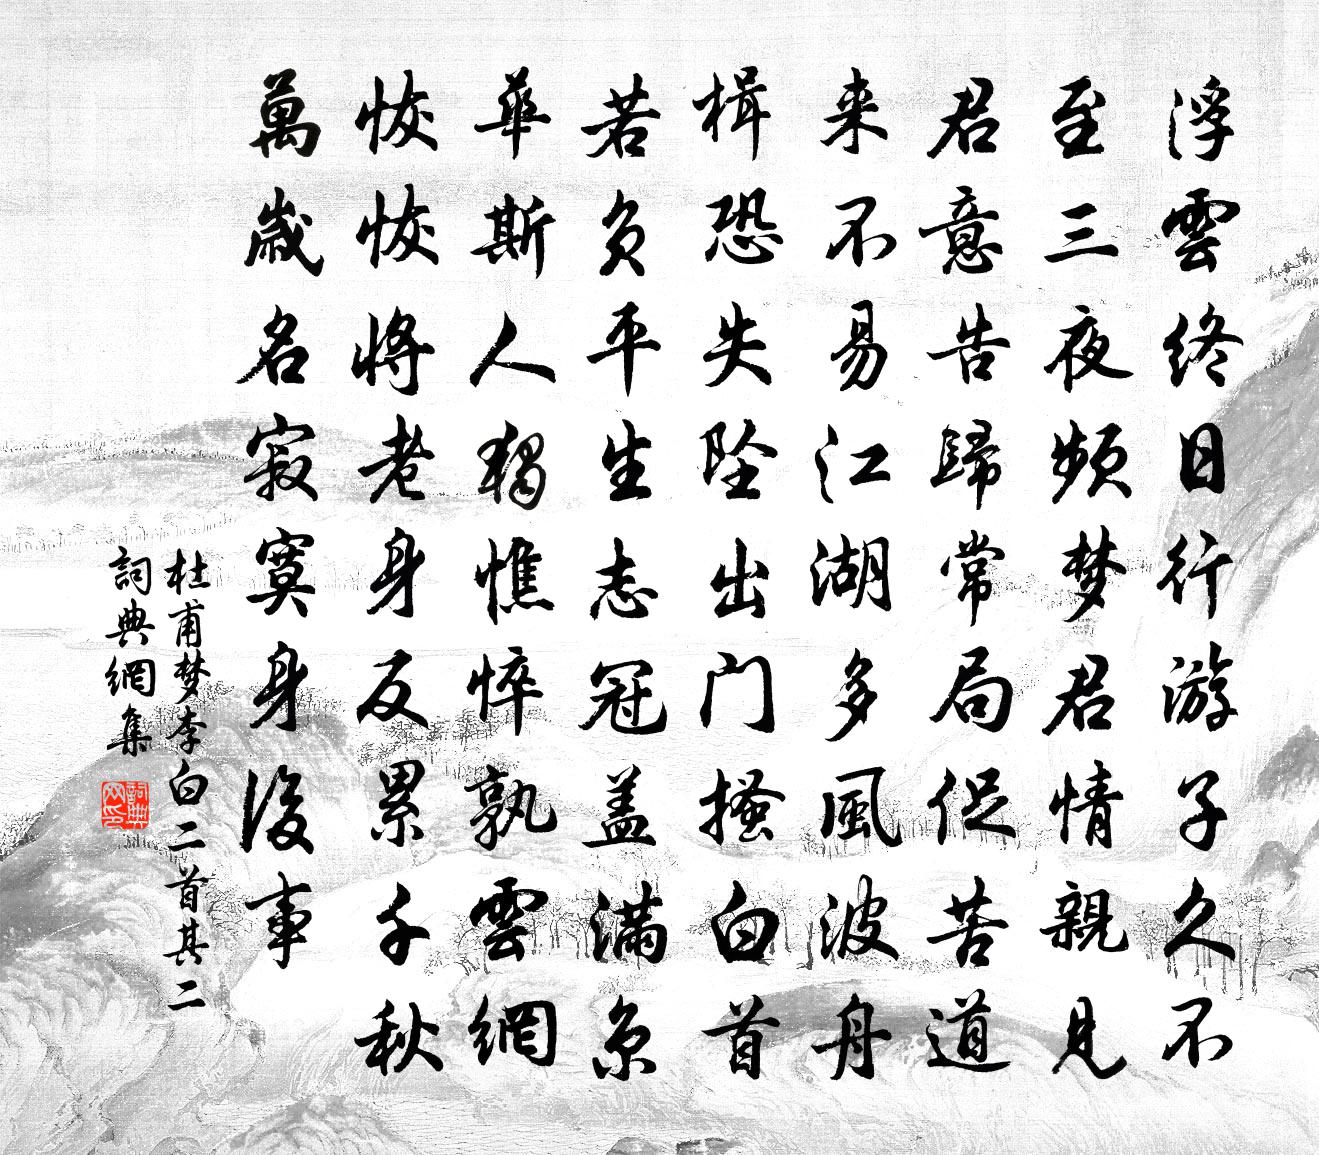 浮雲终日行游子久不
至三夜频梦君情親見
君意告歸常局促苦道
来不易江湖多風波舟
楫恐失坠出门搔白首
若负平生志冠盖满京
華斯人獨憔悴孰雲網
恢恢将老身反累千秋
萬歲名寂寞身後事
杜甫梦李白二首其二
詞典網集
詞典网印